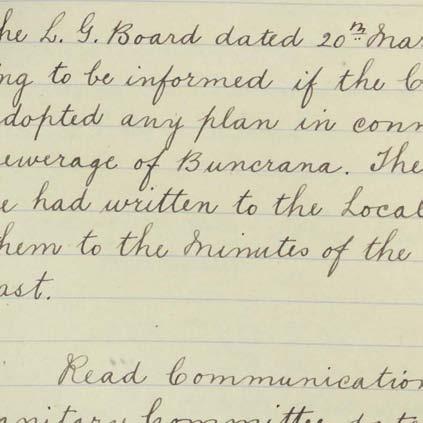 he L. G. Board dated 20th Mar
ng to be informed if the C
dopted any plan in conn
ewerage of Buncrana. The
e had written to the Local
hem to the Minutes of the
ast.
Read Communication
nitary Committee date